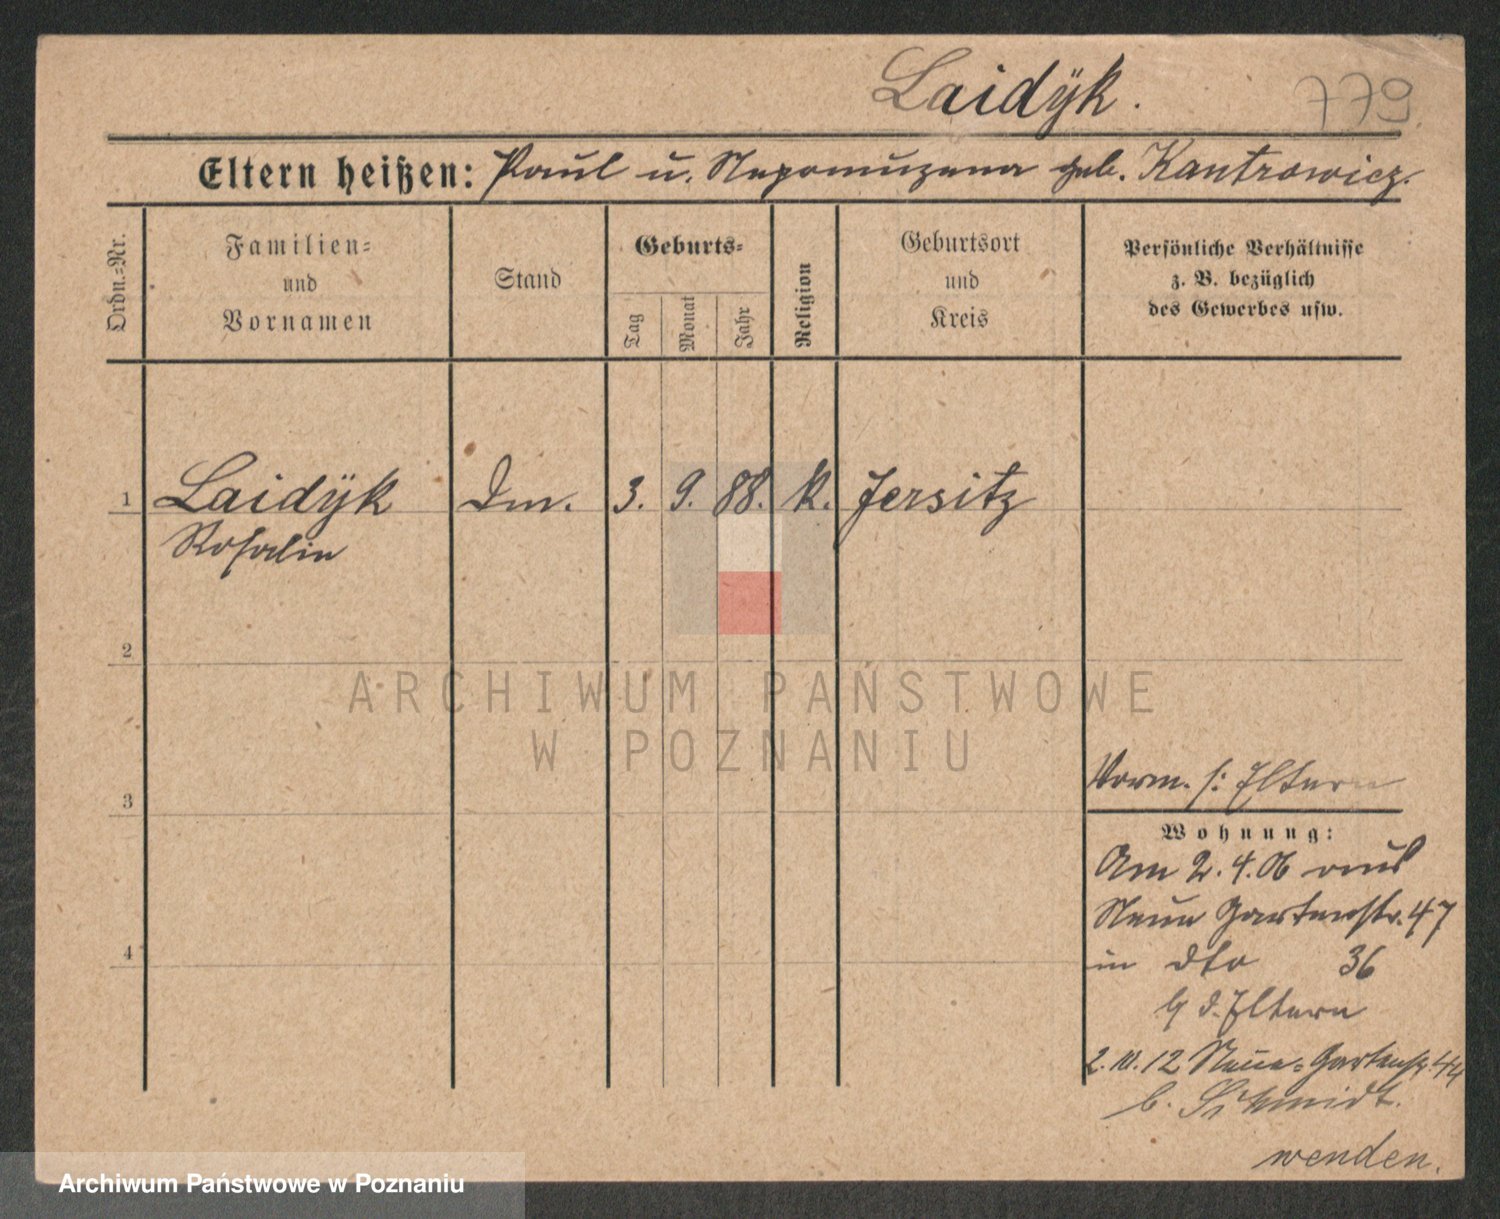 Laidÿk.
779
Eltern heißen: Paul u. Nepomuzena geb. Kantrowicz.
Ordn.-Nr.
Familien-
und
Vornamen
Stand
Geburts-
Tag
Monat
Jahr
Religion
Geburtsort
und
Kreis
Persönliche Verhältnisse
z. B. bezüglich
des Gewerbes usw.
1 Laidÿk Dm. 3. 9. 88. K. Jersitz
Rosalie
2
ARCHIWUM PAŃSTWOWE
W POZNANIU
Vorm. s: Eltern
3
Wohnung:
Am 2.4.06 aus
Neue Gartenstr. 47
4
in dto 36
b d. Eltern
2.10.12 Neue-Gartenstr. 44
b. Schmidt.
wenden.
Archiwum Państwowe w Poznaniu